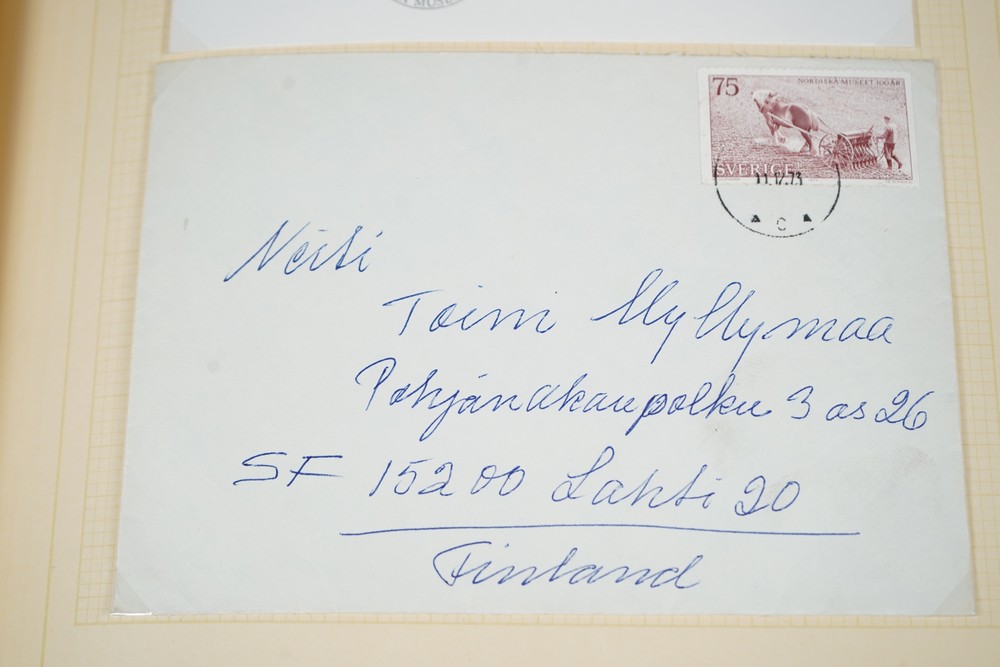 MUSE
75
NORDISKA MUSEET 100 ÅR
SVERIGE
11.12.73
C
Neiti
Toimi Myllymaa
Pohjánakaupolku 3 as 26
SF 15200 Lahti 20
Finland